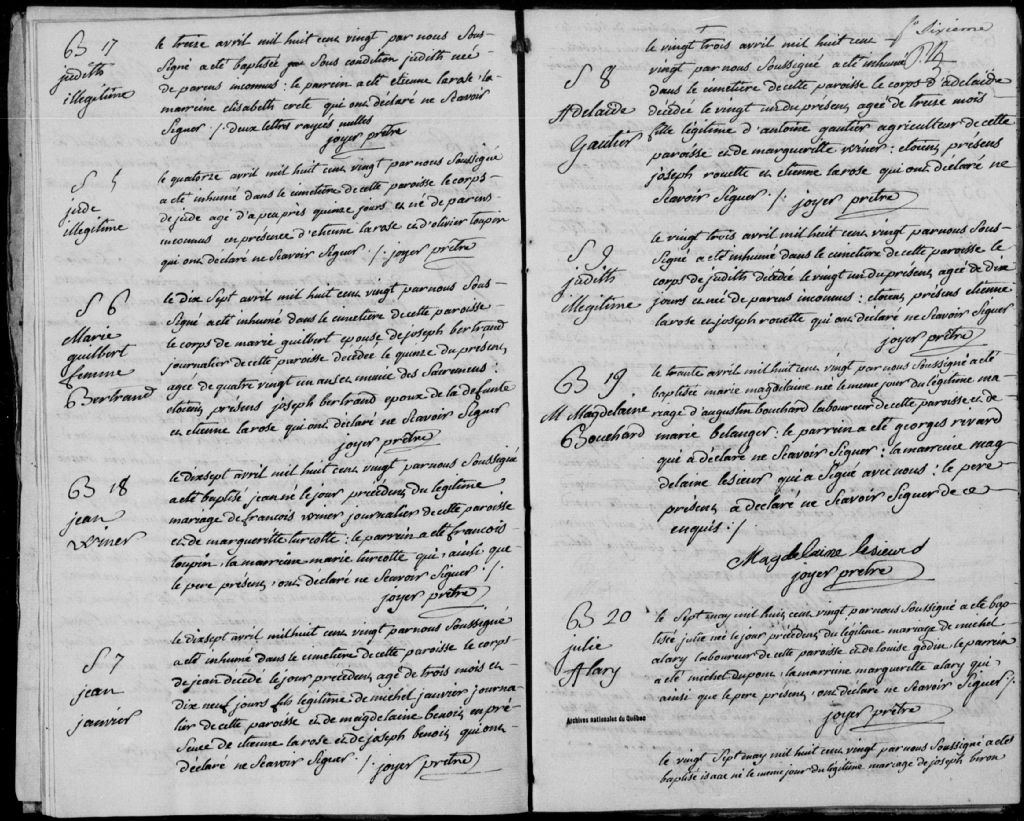 B 17
judith
illegitime
le treise avril mil huit cent vingt par nous Sous-
Signé a eté baptisée Sous condition judith née
de parens inconnus : le parrein a eté etienne larose : la
marreine elisabeth crete qui ont déclaré ne Scavoir
Signer ./. deux lettres rayiés nulles
joyer prêtre
S 5
jude
illegitime
le quatorze avril mil huit cent vingt par nous Soussigné
a eté inhumé dans le cimetiere de cette paroisse le corps
de jude agé d'a peu près quinse jours et né de parens
inconnus en présence d'etienne larose et d'olivier toupin
qui ont déclaré ne Scavoir Signer ./. joyer prêtre
S 6
Marie
guilbert
femme
Bertrand
le dix Sept avril mil huit cent vingt par nous Sous-
Signé a eté inhumé dans le cimetiere de cette paroisse
le corps de marie guilbert epouse de joseph bertrand
journalier de cette paroisse décédée le quinse du présent
agée de quatre vingt un ans et munie des Sacremens :
etoient présens joseph bertrand epoux de la defunte
et etienne larose qui ont déclaré ne Scavoir Signer
joyer prêtre
B 18
jean
winer
le dixsept avril mil huit cent vingt par nous Soussigné
a eté baptisé jean né le jour précédent du legitime
mariage de francois winer journalier de cette paroisse
et de margueritte turcotte : le parrein a eté francois
toupin, la marreine marie turcotte qui, ainsi que
le pere présent, ont déclaré ne Scavoir Signer ./.
joyer prêtre
S 7
jean
janvier
le dixsept avril mil huit cent vingt par nous Soussigné
a eté inhumé dans le cimetiere de cette paroisse le corps
de jean décédé le jour précédent agé de trois mois et
dix neuf jours fils légitime de michel janvier journa-
lier de cette paroisse et de magdelaine benoit en pré-
Sence de etienne larose et de joseph benoit qui ont
déclaré ne Scavoir Signer ./. joyer prêtre
Sixieme
S 8
Adelaide
Gautier
le vingt trois avril mil huit cent
vingt par nous Soussigné a eté inhumé
dans le cimetiere de cette paroisse le corps d'adelaïde
décédée le vingt un du présent agée de treise mois
fille légitime d'antoine gautier agriculteur de cette
paroisse et de marguerittte winer : etoient présens
joseph rouette et etienne larose qui ont déclaré ne
Scavoir Signer ./. joyer prêtre
S 9
judith
illegitime
le vingt trois avril mil huit cent vingt par nous Sous-
Signé a eté inhumé dans le cimetiere de cette paroisse le
corps de judith décédée le vingt un du présent agée de dix
jours et née de parens inconnus : etoient présens etienne
larose et joseph rouette qui ont déclaré ne Scavoir Signer
joyer prêtre
B 19
M Magdelaine
Bouchard
le trante avril mil huit cent vingt par nous Soussigné a eté
baptisée marie magdelaine née le meme jour du légitime ma-
riage d'augustin bouchard laboureur de cette paroisse et de
marie belanger : le parrein a eté georges rivard
qui a déclaré ne Scavoir Signer : la marreine mag
delaine lesieur qui a Signé avec nous : le pere
présent a déclaré ne Scavoir Signer de ce
enquis ./.
Magdelaine lesieur
joyer prêtre
B 20
julie
Alary
le Sept may mil huit cent vingt par nous Soussigné a eté bap
tisée julie née le jour précédent du légitime mariage de michel
alary laboureur de cette paroisse et de louise godin : le parrein
a eté michel dupont, la marreine marguerite alary qui,
ainsi que le pere présent, ont déclaré ne Scavoir Signer ./.
joyer prêtre
Archives nationales du Québec
le vingt Sept may mil huit cent vingt par nous Soussigné a eté
baptisé isaac né le meme jour du légitime mariage de joseph biron